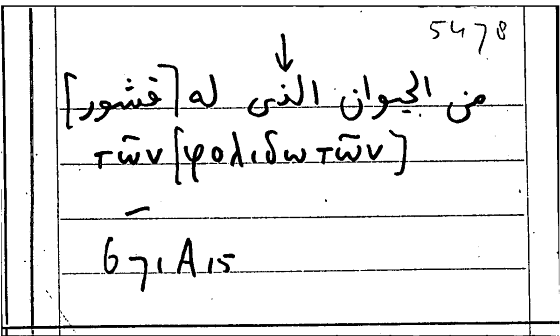 5478
من الحيوان الذى له [قشور]
τῶν [φολιδωτῶν]
671A15